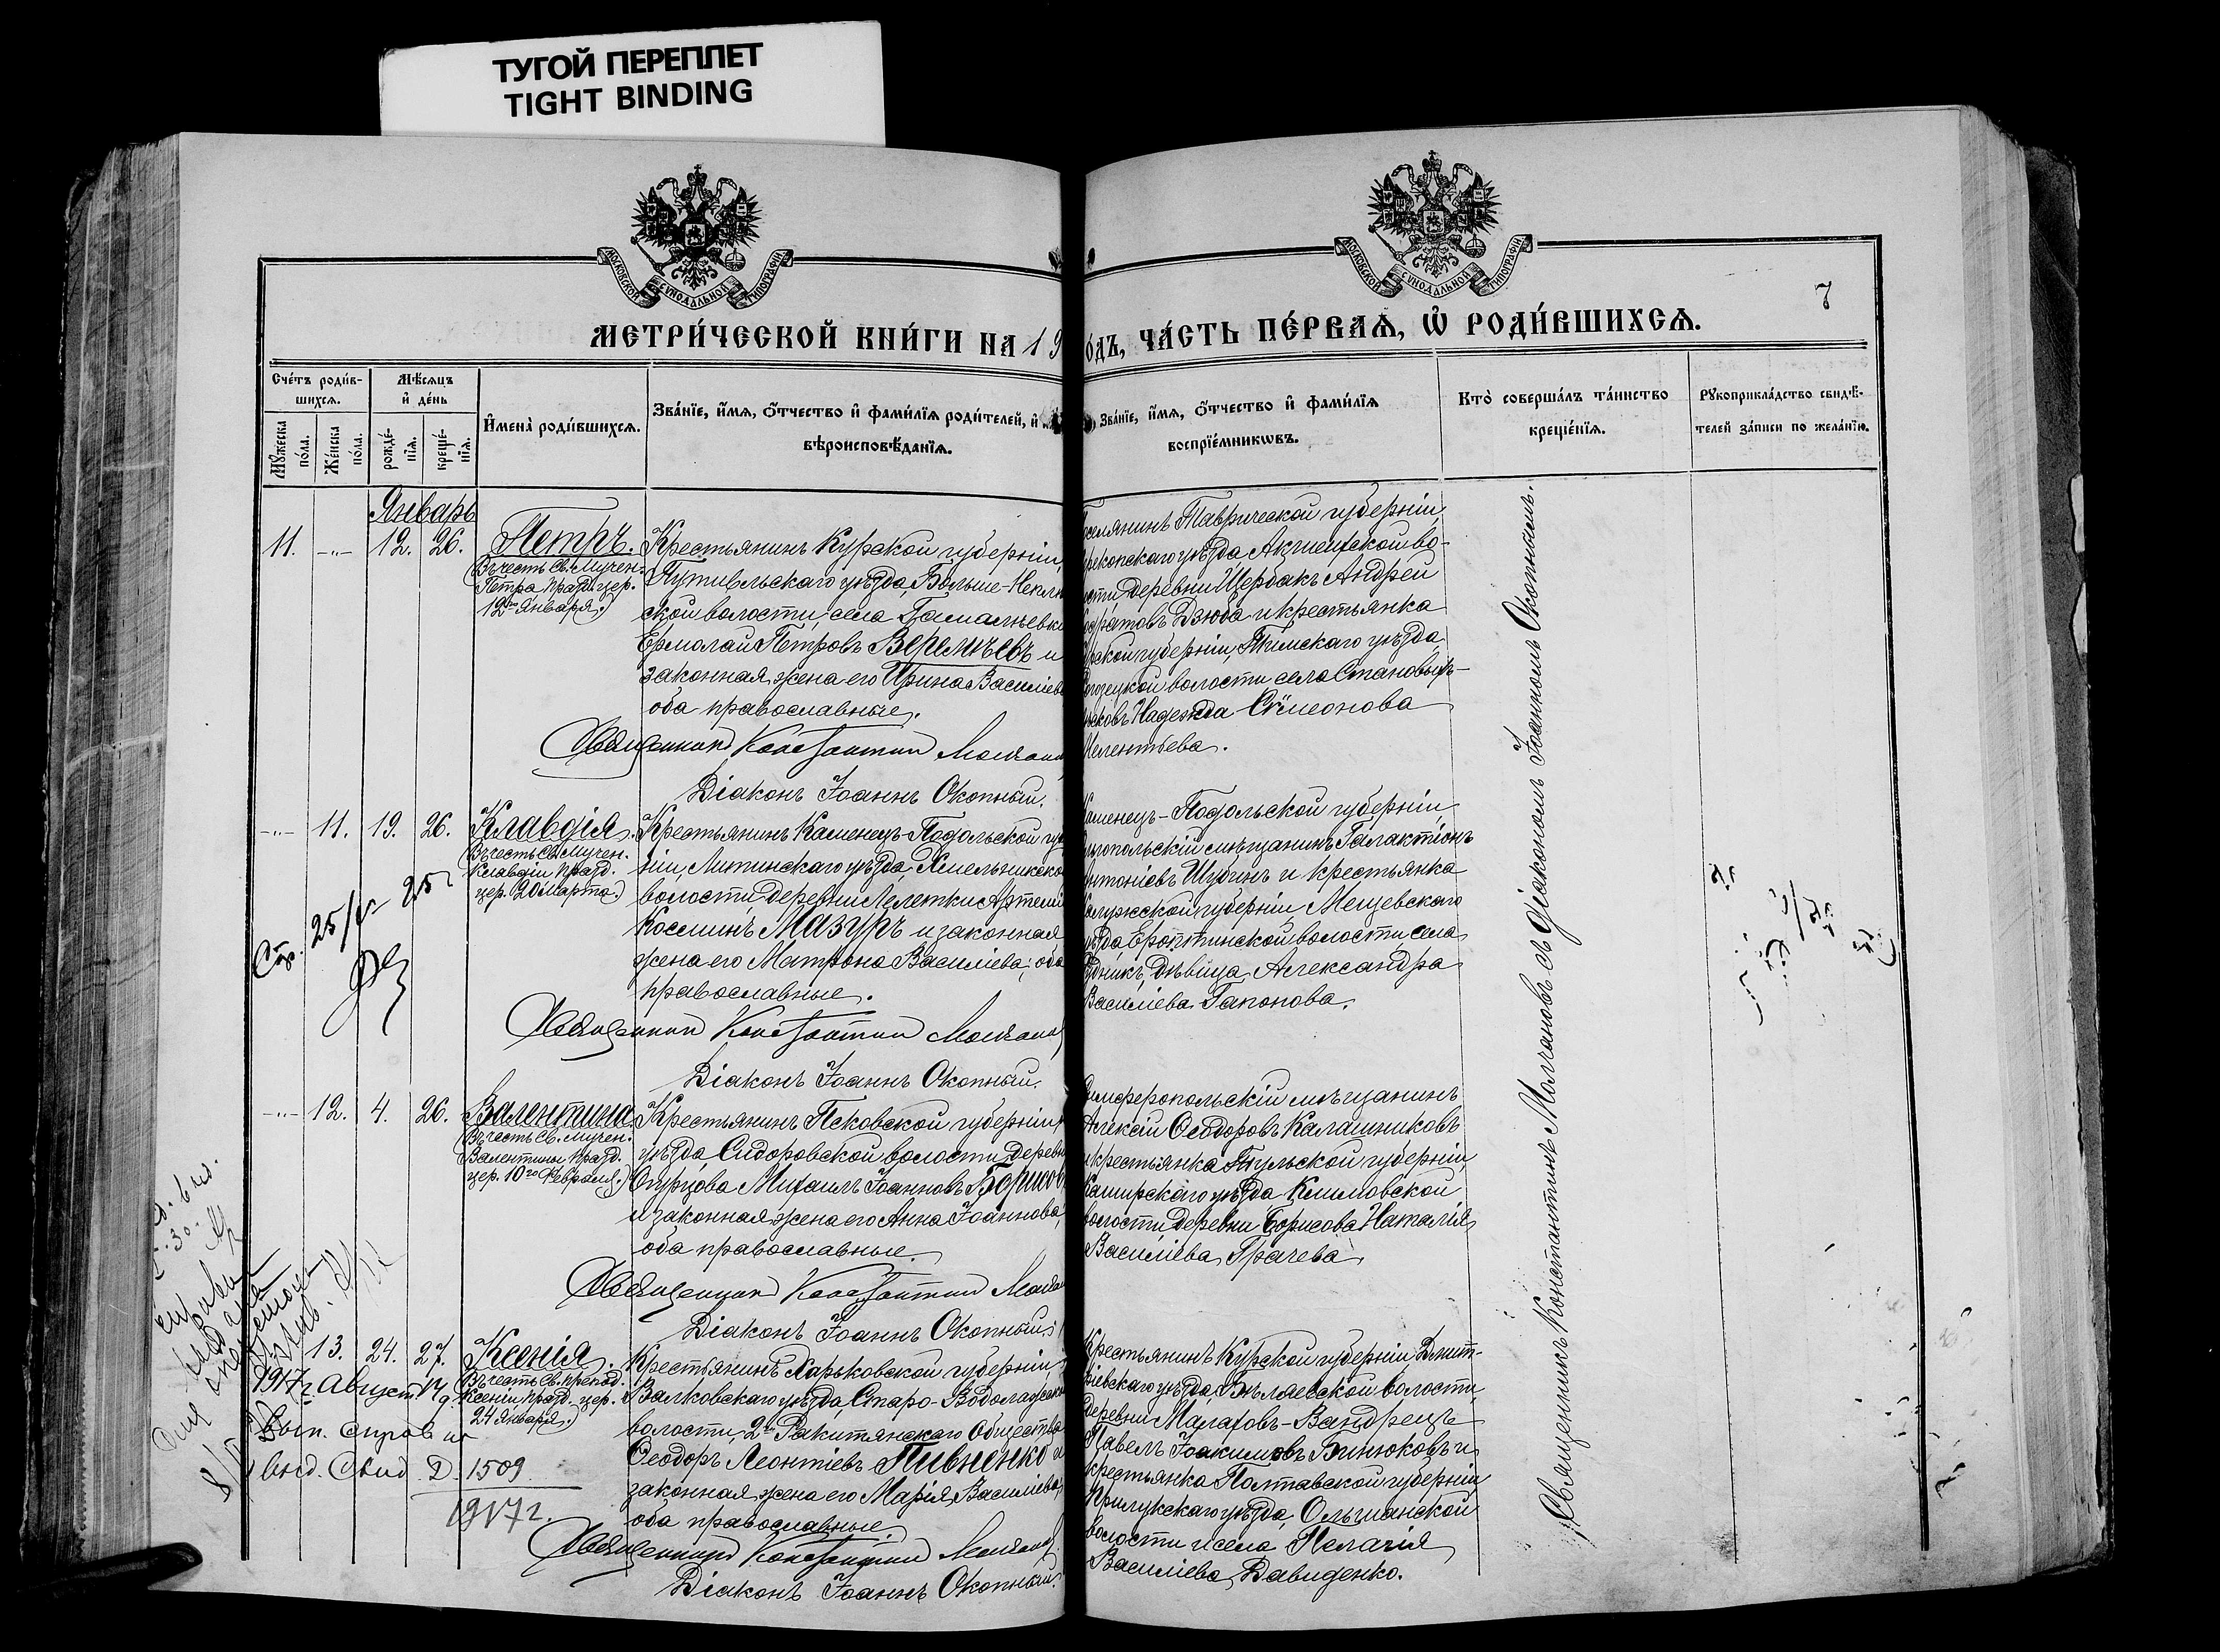 ТУГОЙ ПЕРЕПЛЕТ
TIGHT BINDING
МОСКОВСКОЙ СѴНОДАЛЬНОЙ ТИПОГРАФІИ
МОСКОВСКОЙ СѴНОДАЛЬНОЙ ТИПОГРАФІИ
7
МЕТРИ́ЧЕСКОЙ КНИ́ГИ НА 19
О́ДЪ, ЧА́СТЬ ПЕ́РВАѦ, Ѡ҆ РОДИ́ВШИХСѦ.
Сче́тъ роди́в-
шихсѧ.
Мѣ́сѧцъ
и҆ де́нь
Му́жеска
по́ла.
Же́нска
по́ла.
рожде́-
нїѧ.
креще́-
нїѧ.
И҆мена̀ роди́вшихсѧ.
Зва́нїе, и҆́мѧ, ѻ҆́тчество и҆ фами́лїѧ роди́телей, и҆
вѣроисповѣ́данїѧ.
Зва́нїе, и҆́мѧ, ѻ҆́тчество и҆ фами́лїѧ
воспрїе́мникѡвъ.
Кто̀ соверша́лъ та́инство
креще́нїѧ.
Рꙋкоприкла́дство свидѣ́-
телей за́писи по жела́нїю.
Январь
11. -"- 12. 26. Петръ.
(Въ честь Св. Мучен.
Петра празд. цер.
12го Января.)
Крестьянинъ Курской губерніи,
Путивльскаго уѣзда, Больше-Непл
ской волости, села Гамалѣевки
Ермолай Петровъ Веремѣевъ и
законная жена его Ирина Васильев
оба православные.
Священникъ Константин Молчанов
Діаконъ Іоаннъ Окопный.
селянинъ Таврической губерніи,
рекопскаго уѣзда, Акшеихской во-
сти деревни Щербакъ Андрей
ратовъ Дзюба и крестьянка
рской губерніи, Тимскаго уѣзда,
волости села Становыхъ-
Надежда Сѵмеонова
Мелентьева.
-"- 11. 19. 26. Клавдія.
(Въ честь Св. Мучен.
Клавдіи празд.
цер. 20 Марта.)
Крестьянинъ Каменецъ-Подольской гу
ніи, Литинскаго уѣзда, Хмельникско
волости деревни Лелетки Артемій
Косминъ Мазуръ и законная
жена его Матрона Василіева; оба
православные.
Священник Константин Молчанов
Діаконъ Іоаннъ Окопный.
Каменецъ-Подольской губерніи,
гопольскій мѣщанинъ Галактіонъ
Антоніовъ Шубинъ и крестьянка
Калужской губерніи Мещевскаго
уѣзда, волости, села
дѣвица Александра
Василіева Гапонова.
Стр. 25/V 25
-"- 12. 4. 26. Валентина
(Въ честь Св. Мучен.
Валентины празд.
цер. 10го Февраля.)
Крестьянинъ Псковской губерніи,
уѣзда, Сидоровской волости, деревн
Огурцова Михаилъ Іоанновъ Борисов
и законная жена его Анна Іоаннова,
оба православные.
Священник Константин Молчан
Діаконъ Іоаннъ Окопный
Симферопольскій мѣщанинъ
Алексій Ѳеодоровъ Калашниковъ
и крестьянка Тульской губерніи,
Каширскаго уѣзда Климовской
волости, деревни Борисова Наталія
Василіева Грачева.
13. 24. 27. Ксенія.
(Въ честь Св. Препод.
Ксеніи празд. цер.
24 Января.)
Крестьянинъ Харьковской губерніи,
Валковскаго уѣзда, Старо-Водолажско
волости, 2го Ракитянскаго Общества
Ѳеодоръ Леонтіевъ Пивненко и
законная жена его Марія Василіева,
оба православные.
Священник Константин Молчанов
Діаконъ Іоаннъ Окопный.
Крестьянинъ Курской губерніи, Дмит-
ріевскаго уѣзда, волости,
деревни Малаховъ-Вандрецъ
Павелъ Іоакимовъ Бинюковъ и
крестьянка Полтавской губерніи
Прилукскаго уѣзда, Ольшанской
волости и села Пелагія
Василіева Давиденко.
1917 г. Август
Вып. справ
выд. свид Д. 1509
1917 г.
Священникъ Константинъ Молчановъ съ діакономъ Іоанномъ Окопнымъ.